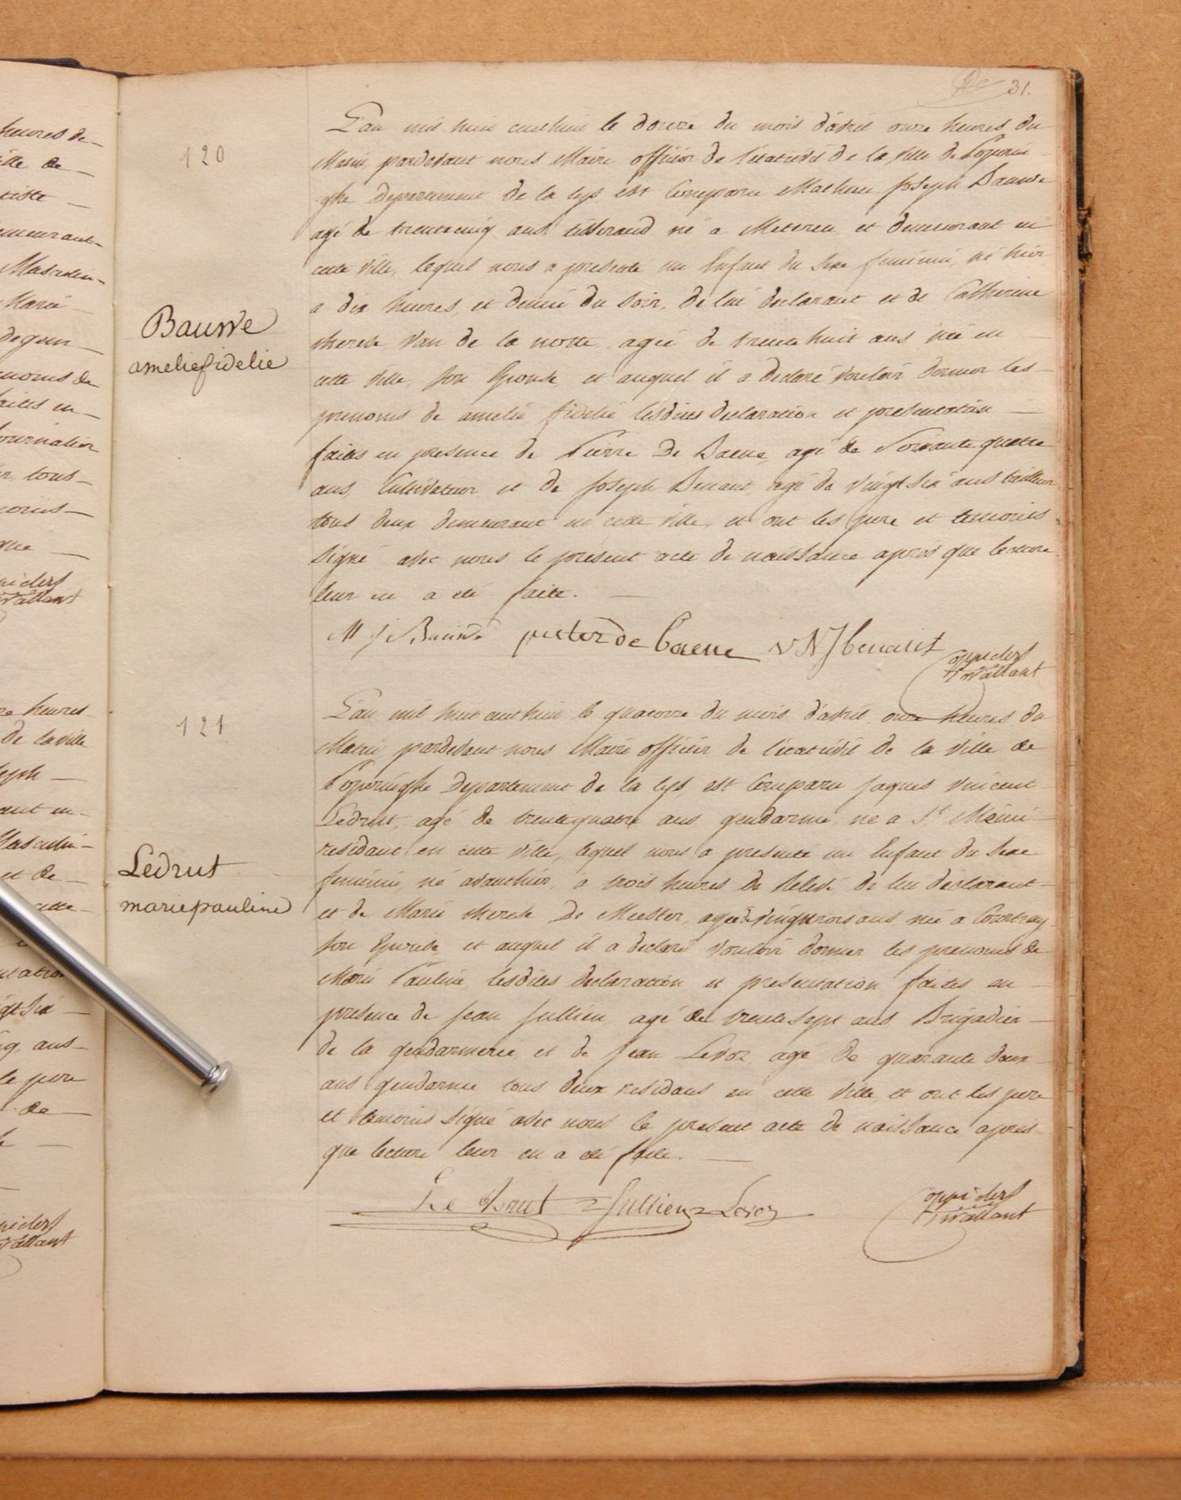 31.
120
L'an mil huit cent huit le douze du mois d'avril onze heures du
Matin, pardevant nous Maire officier de l'etat civil de la ville de Poperin-
ghe departement de la lys est Comparu Mathieu Joseph Bauwe
agé de trente cinq ans tisserand né a Meteren et demeurant en
cette ville, lequel nous a presenté un Enfant du sexe feminin, né hier
a dix heures et demie du soir, de lui declarant et de Catherine
therese Van de la notte, agée de trente huit ans née en
cette ville, son Epouse, et auquel il a declaré vouloir donner les
prenoms de amelie fidelie lesdites declaration et presentation
faites en presence de Pierre De Baene agé de soixante quatre
ans, Cultivateur et de Joseph Benaut, agé de vingt six ans tailleur
tous deux demeurant en cette ville, et ont les pere et temoins
signé avec nous le présent acte de naissance apres que lecture
leur en a été faite.
Bauwe
ameliefidelie
M J Bauwe pieter de baene V N J benaut
Coppiders
Wallant
121
L'an mil huit cent huit le quatorze du mois d'avril onze heures du
Matin pardevant nous Maire officier de l'etat civil de la ville de
Poperinghe Departement de la lys est Comparu Jaques Vincent
Ledrut, agé de trente quatre ans gendarme né a St.
residant en cette ville, lequel nous a presenté un Enfant du sexe
feminin, né avanthier, a trois heures de de lui declarant
et de Marie therese De Meester, agée de vingt trois ans née a Courtray
son Epouse, et auquel il a declaré vouloir donner les prenoms de
Marie Pauline, lesdites declaration et presentation faites en
presence de Jean Jullien, agé de trente sept ans Brigadier
de la gendarmerie et de Jean Leroz agé de quarante deux
ans gendarme tous deux residans en cette ville et ont les pere
et temoins signé avec nous le present acte de naissance apres
que lecture leur en a été faite.
Ledrut
marie pauline
Le Drut Jullien Leroz
Coppiders
Wallant